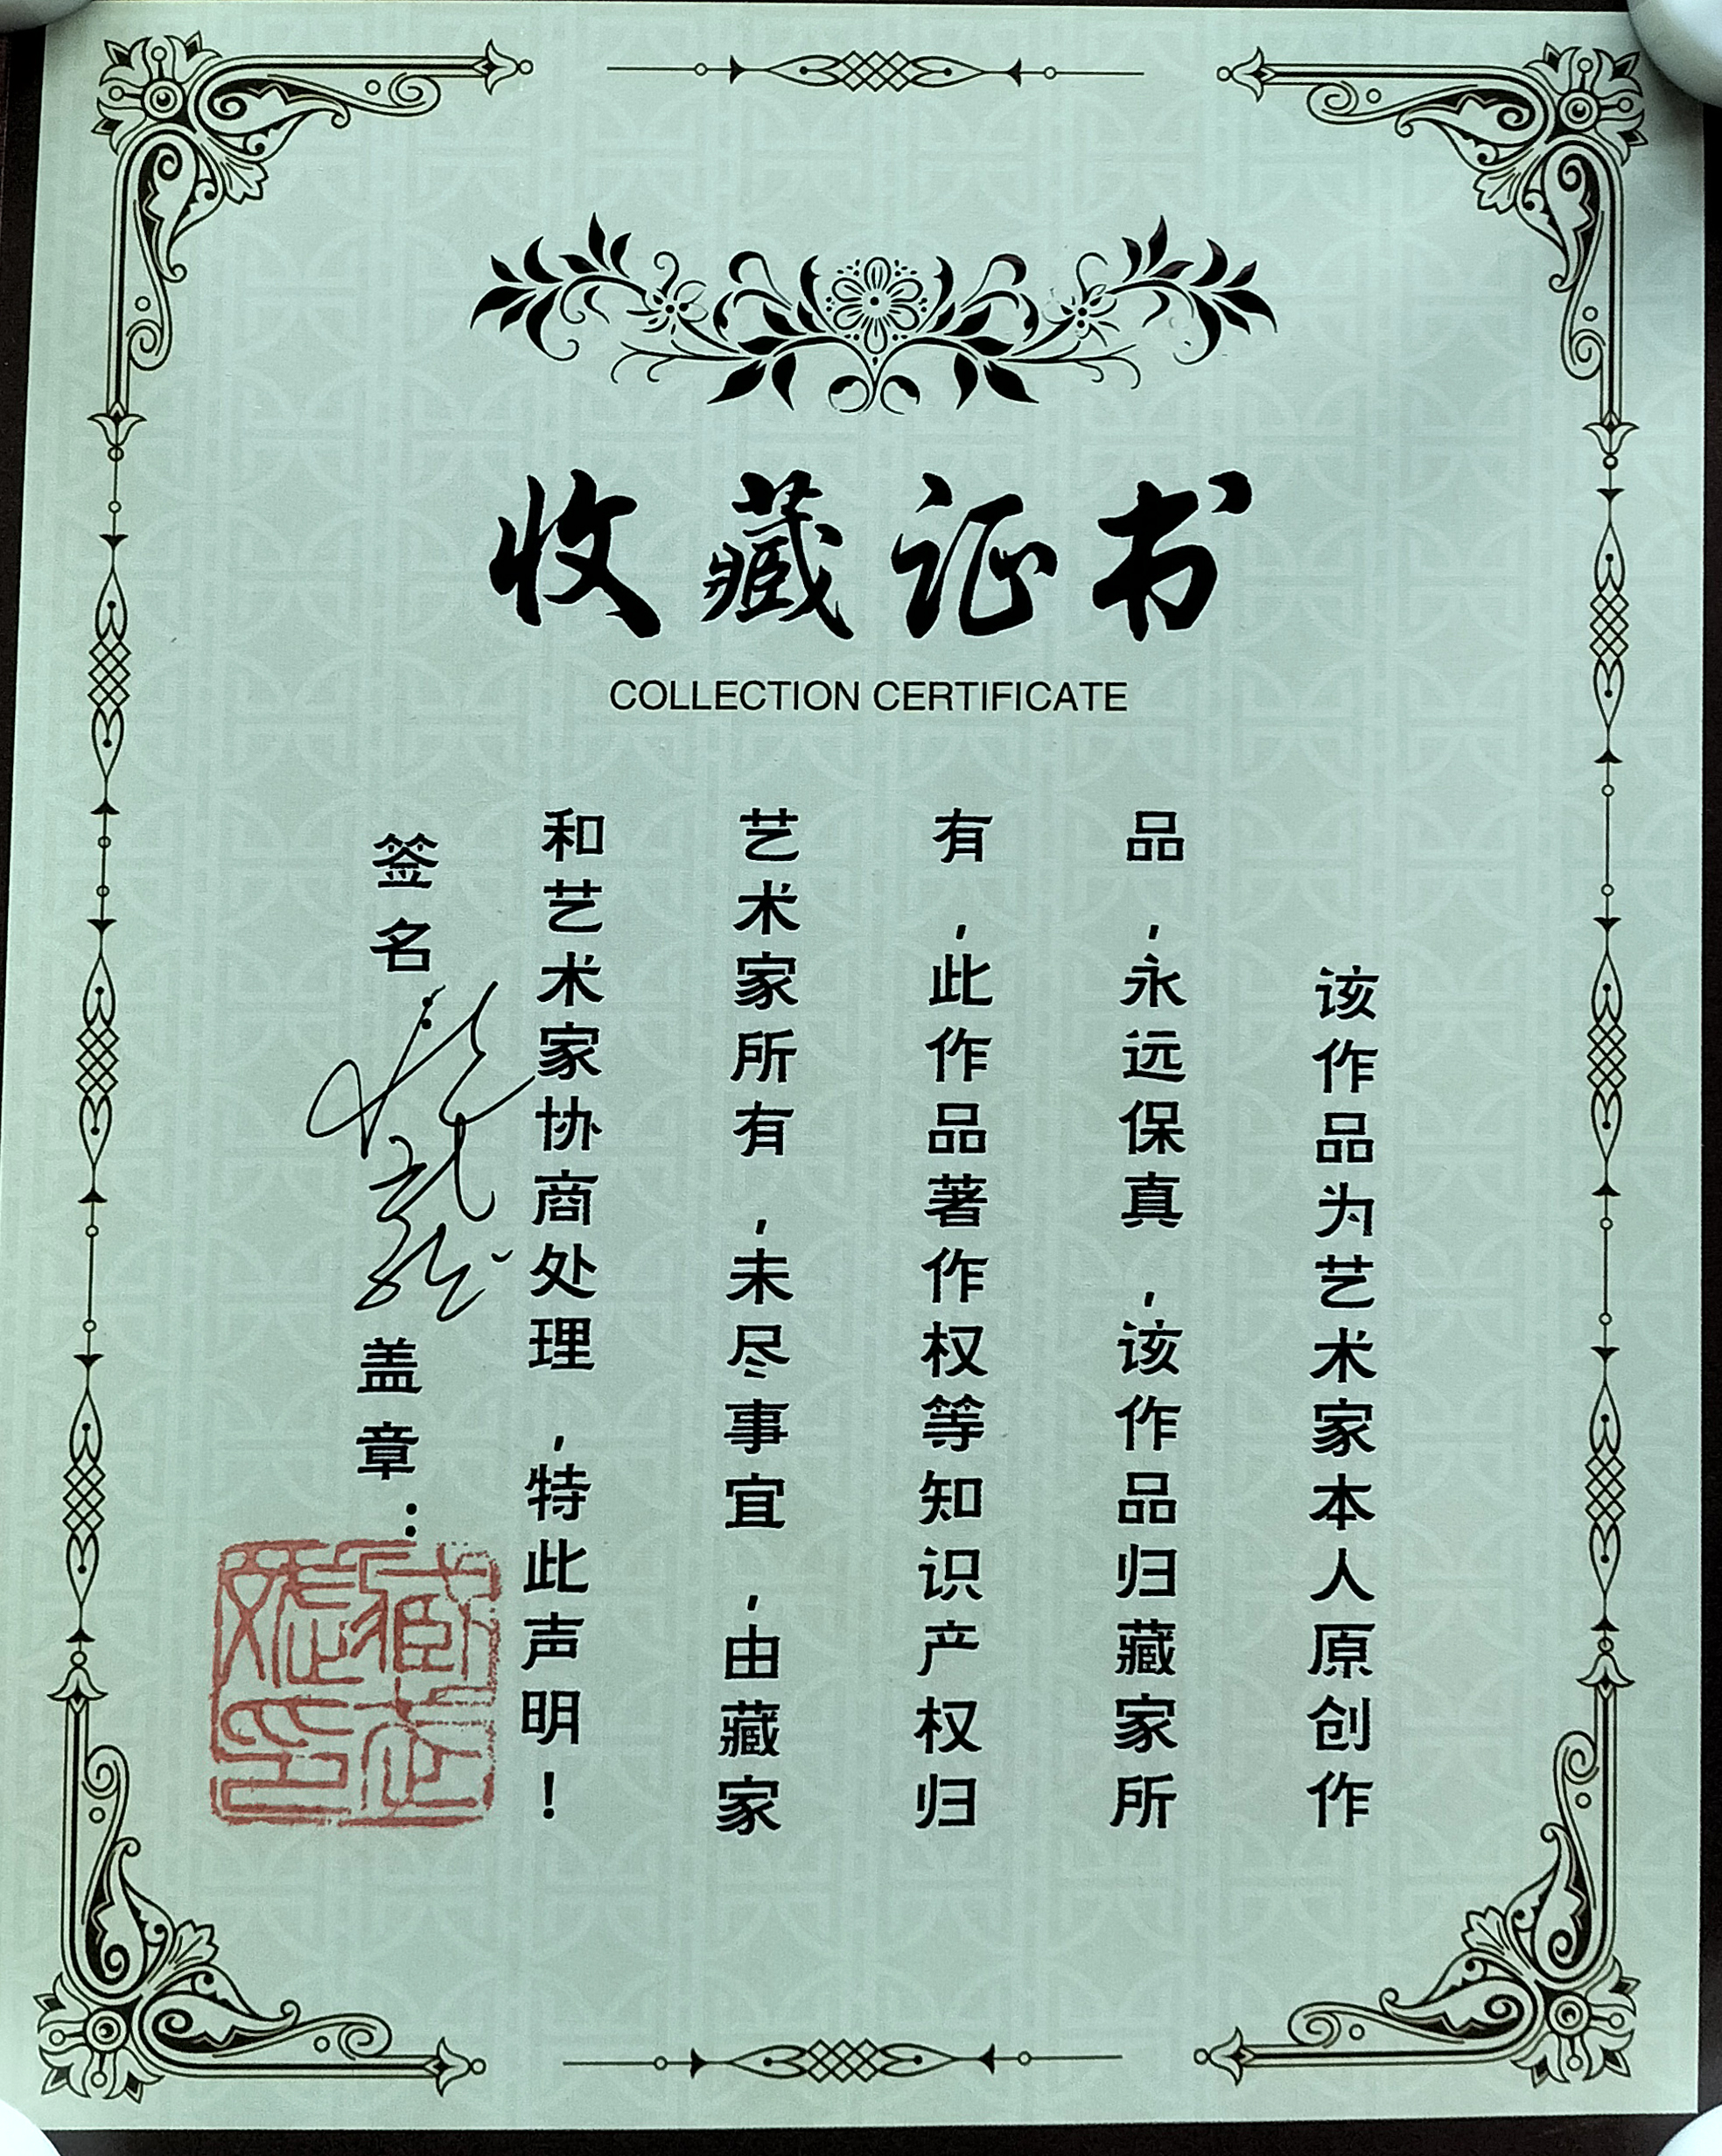 收藏证书
COLLECTION CERTIFICATE
该作品为艺术家本人原创作
品,永远保真,该作品归藏家所
有,此作品著作权等知识产权归
艺术家所有,未尽事宜,由藏家
和艺术家协商处理,特此声明!
签名
盖章: